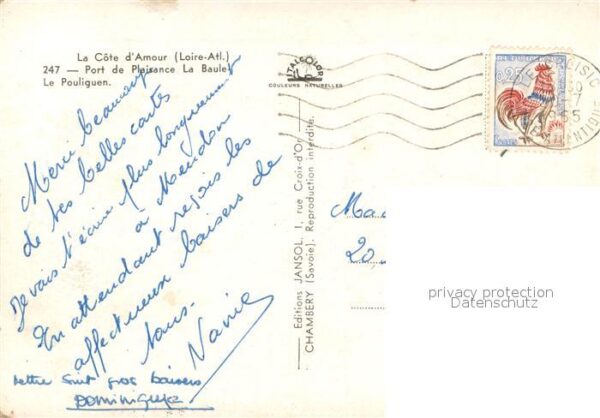 La Côte d'Amour (Loire-Atl.)
247 — Port de Plaisance La Baule-
Le Pouliguen.
ITALCOLOR
COULEURS NATURELLES
0,25
Merci beaucoup
de tes belles cartes
Je vais t'écrire plus longuement
à Meudon
En attendant reçois les
affectueux baisers de
tous.
Editions JANSOL, 1, rue Croix-d'Or
CHAMBERY (Savoie). Reproduction interdite.
20,
privacy protection
Datenschutz
baisers
Dominique